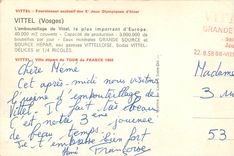 VITTEL - Fournisseur exclusif des Xe Jeux Olympiques d'hiver
VITTEL (Vosges)
L'embouteillage de Vittel, le plus important d'Europe.
40.000 m2 couverts - Capacité de production : 3.000.000 de
bouteilles par jour - Eaux minérales GRANDE SOURCE et
SOURCE HÉPAR, eau pressée VITTELLOISE. Sodas VITTEL-
DÉLICES et 1/4 RICQLÈS.
VITTEL - Ville départ du TOUR de FRANCE 1968
GRANDE
22.8.68
Chère Mémé
Cet après-midi nous visitons
l'usine d'embouteillage de
Vittel. Il fait très beau
et notre 3ème journée
de beau temps.
Je t'embrasse bien fort
Françoise
Madame
3
53